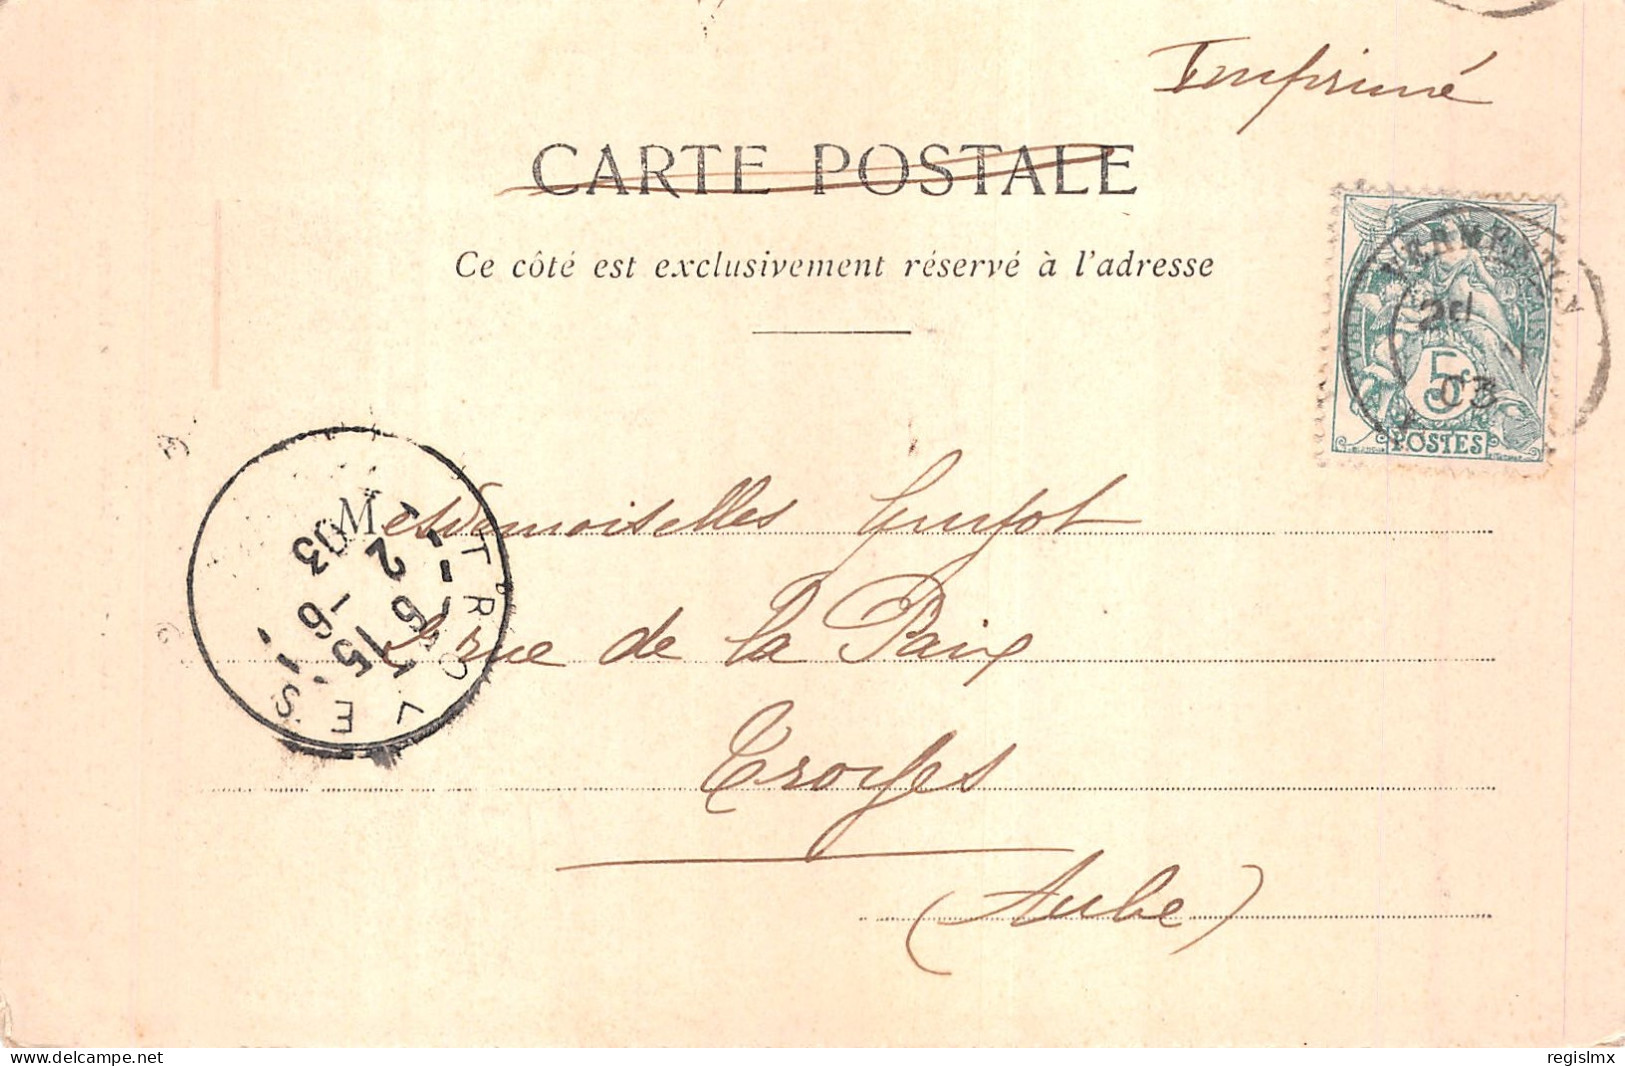 Imprimé
CARTE POSTALE
Ce côté est exclusivement réservé à l'adresse
VERMENTON
03
5c
POSTES
Mesdemoiselles Guyot
rue de la Paix
Troyes
(Aube)
TROYES
15
-6
03
delcampe.net
regislmx